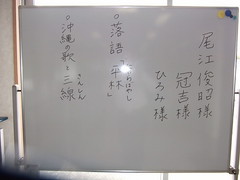 尾江俊昭様
冠吉様
ひろみ様
○落語「平林」
ひらばやし
○沖縄の歌と三線
さんしん